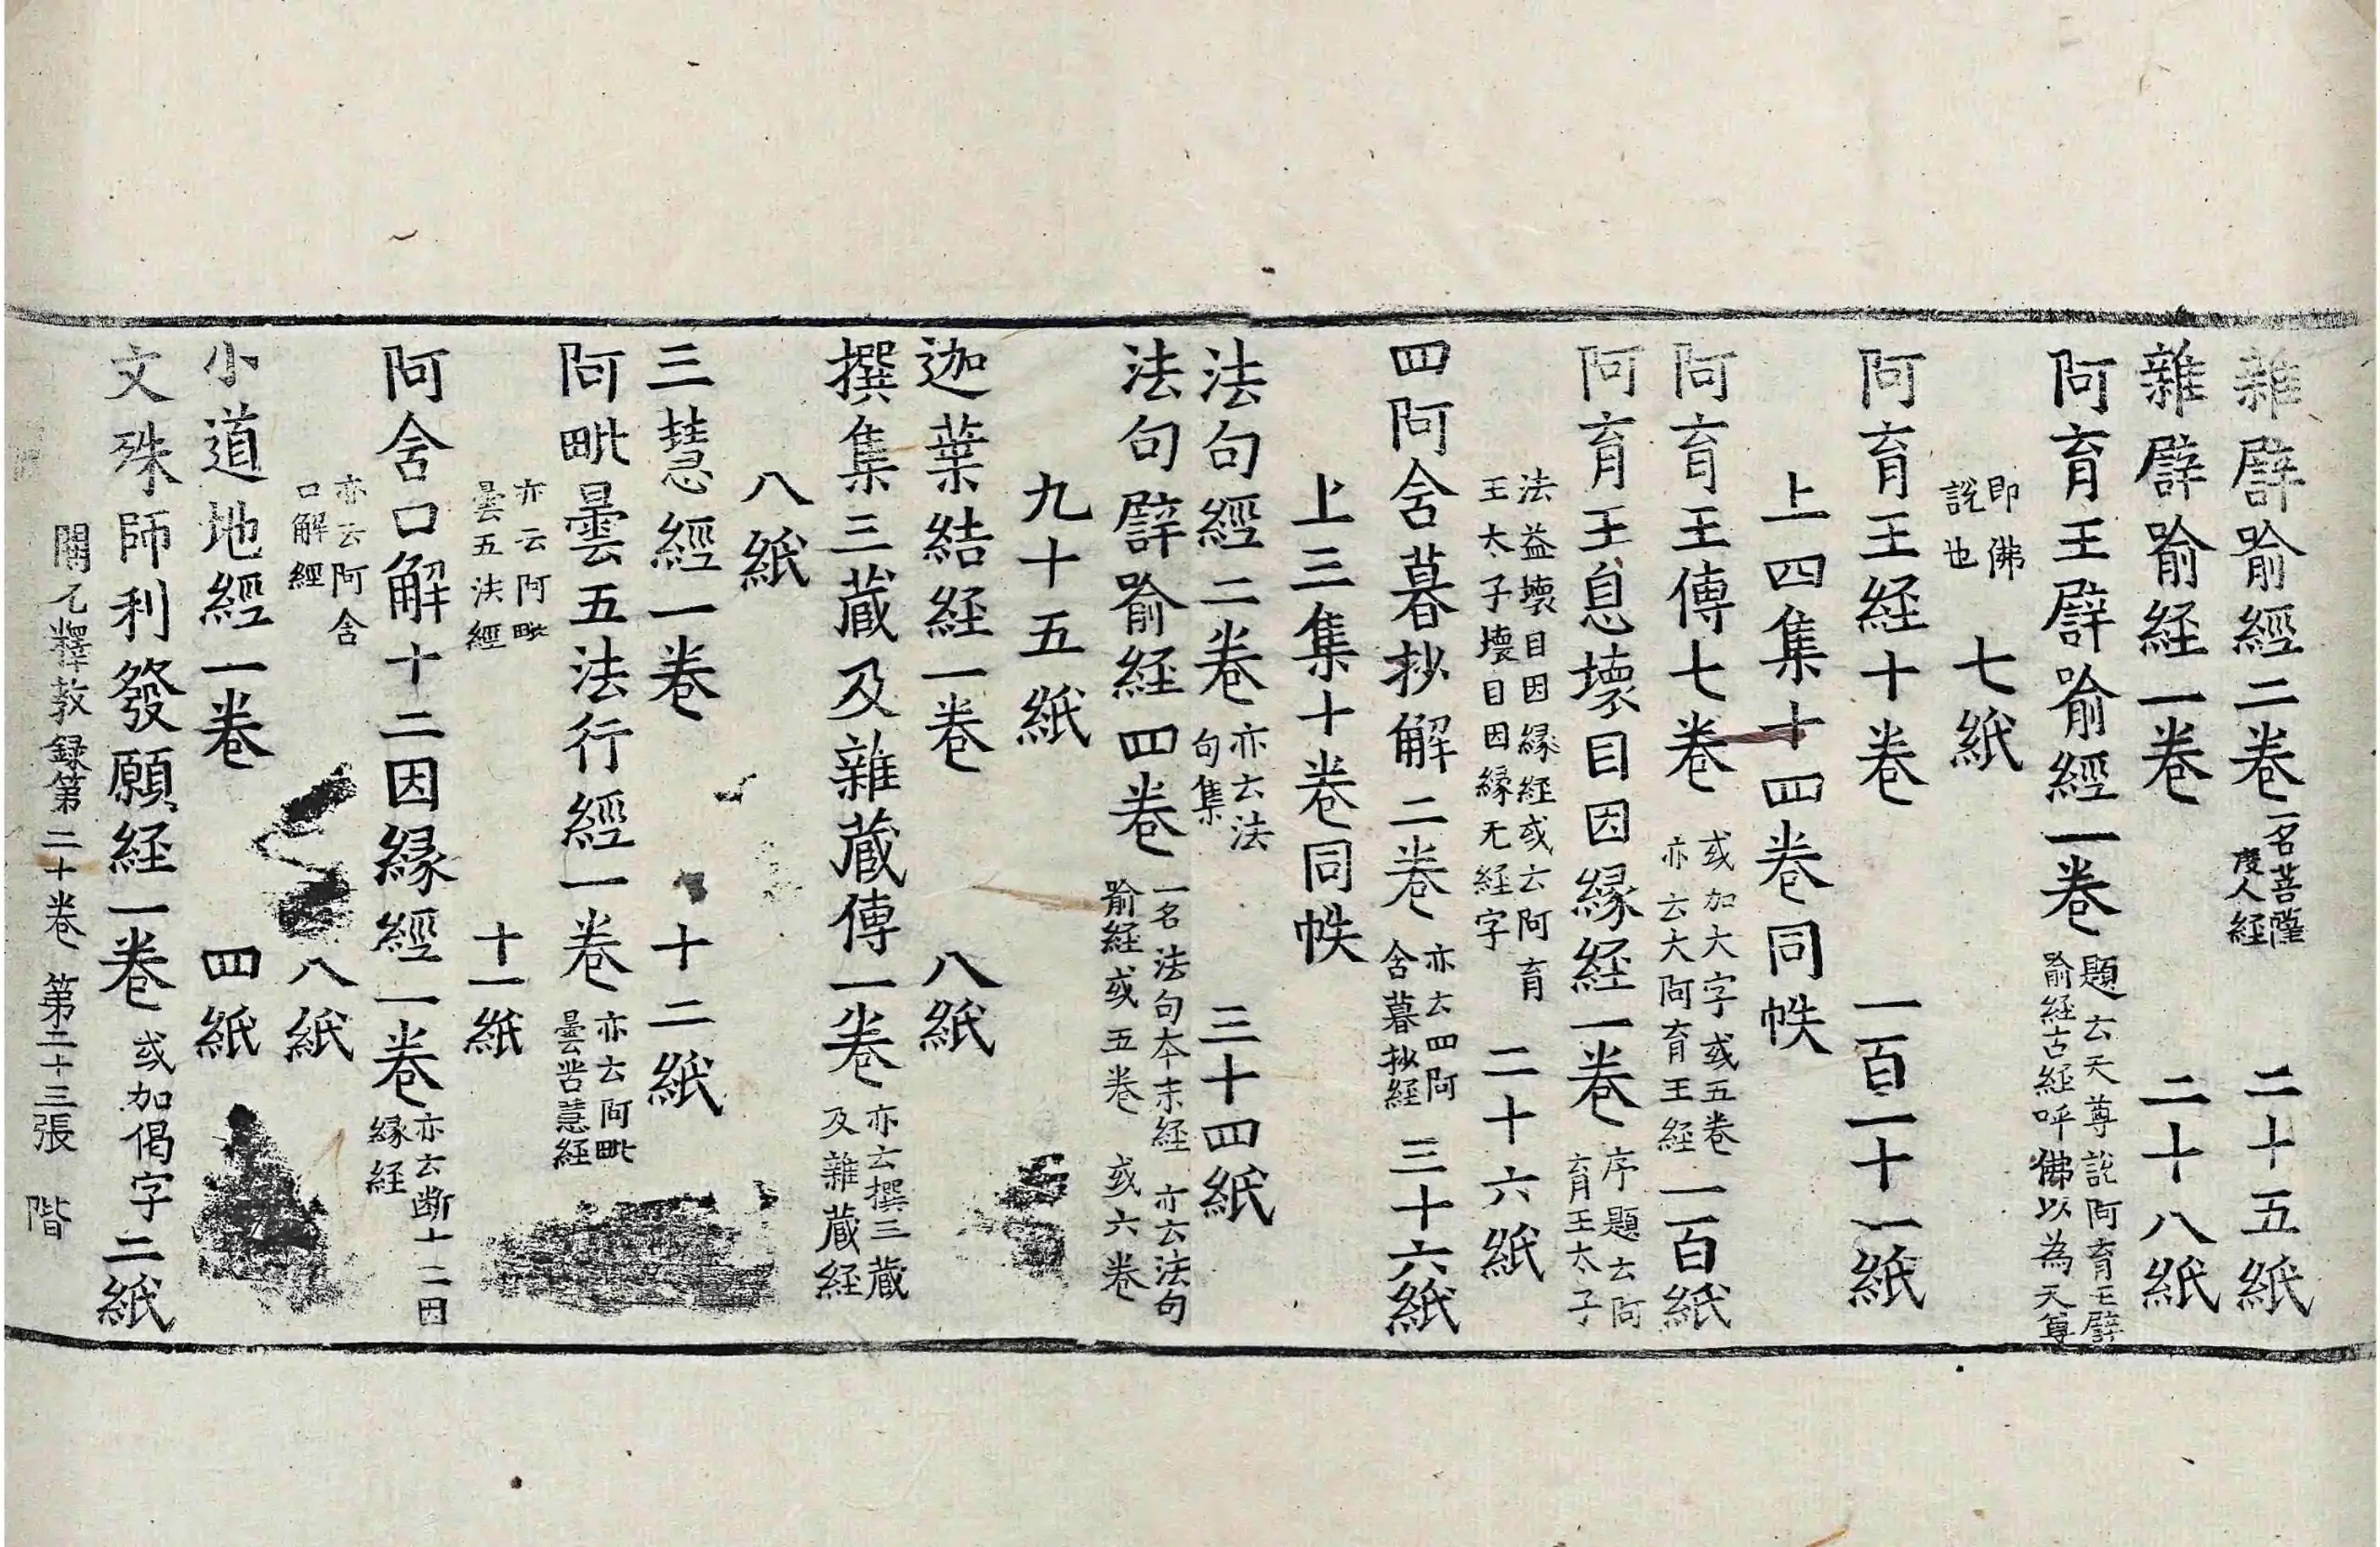 雜譬喻經二卷一名菩薩度人経 二十五紙
雜譬喻経一卷 二十八紙
阿育王譬喻經一卷題云天尊說阿育王譬喻経古経呼佛以為天尊
即佛說也 七紙
阿育王経十卷 一百二十一紙
上四集十四卷同帙
阿育王傳七卷或加大字或五卷亦云大阿育王経 一百紙
阿育王息壞目因緣経一卷序題云阿育王太子
法益壞目因緣経或云阿育王太子壞目因緣无経字 二十六紙
四阿含暮抄解二卷亦云四阿含暮抄経 三十六紙
上三集十卷同帙
法句經二卷亦云法句集 三十四紙
法句譬喻経四卷一名法句本末経亦云法句喻経或五卷或六卷
九十五紙
迦葉結経一卷 八紙
撰集三蔵及雜蔵傳一卷亦云撰三蔵及雜蔵経
八紙
三慧經一卷 十二紙
阿毗曇五法行經一卷亦云阿毗曇苦慧経
亦云阿毗曇五法經 十一紙
阿含口解十二因緣經一卷亦云断十二因緣経
亦云阿含口解經 八紙
小道地經一卷 四紙
文殊師利發願経一卷或加偈字 二紙
開元釋教録第二十卷 第二十三張 階